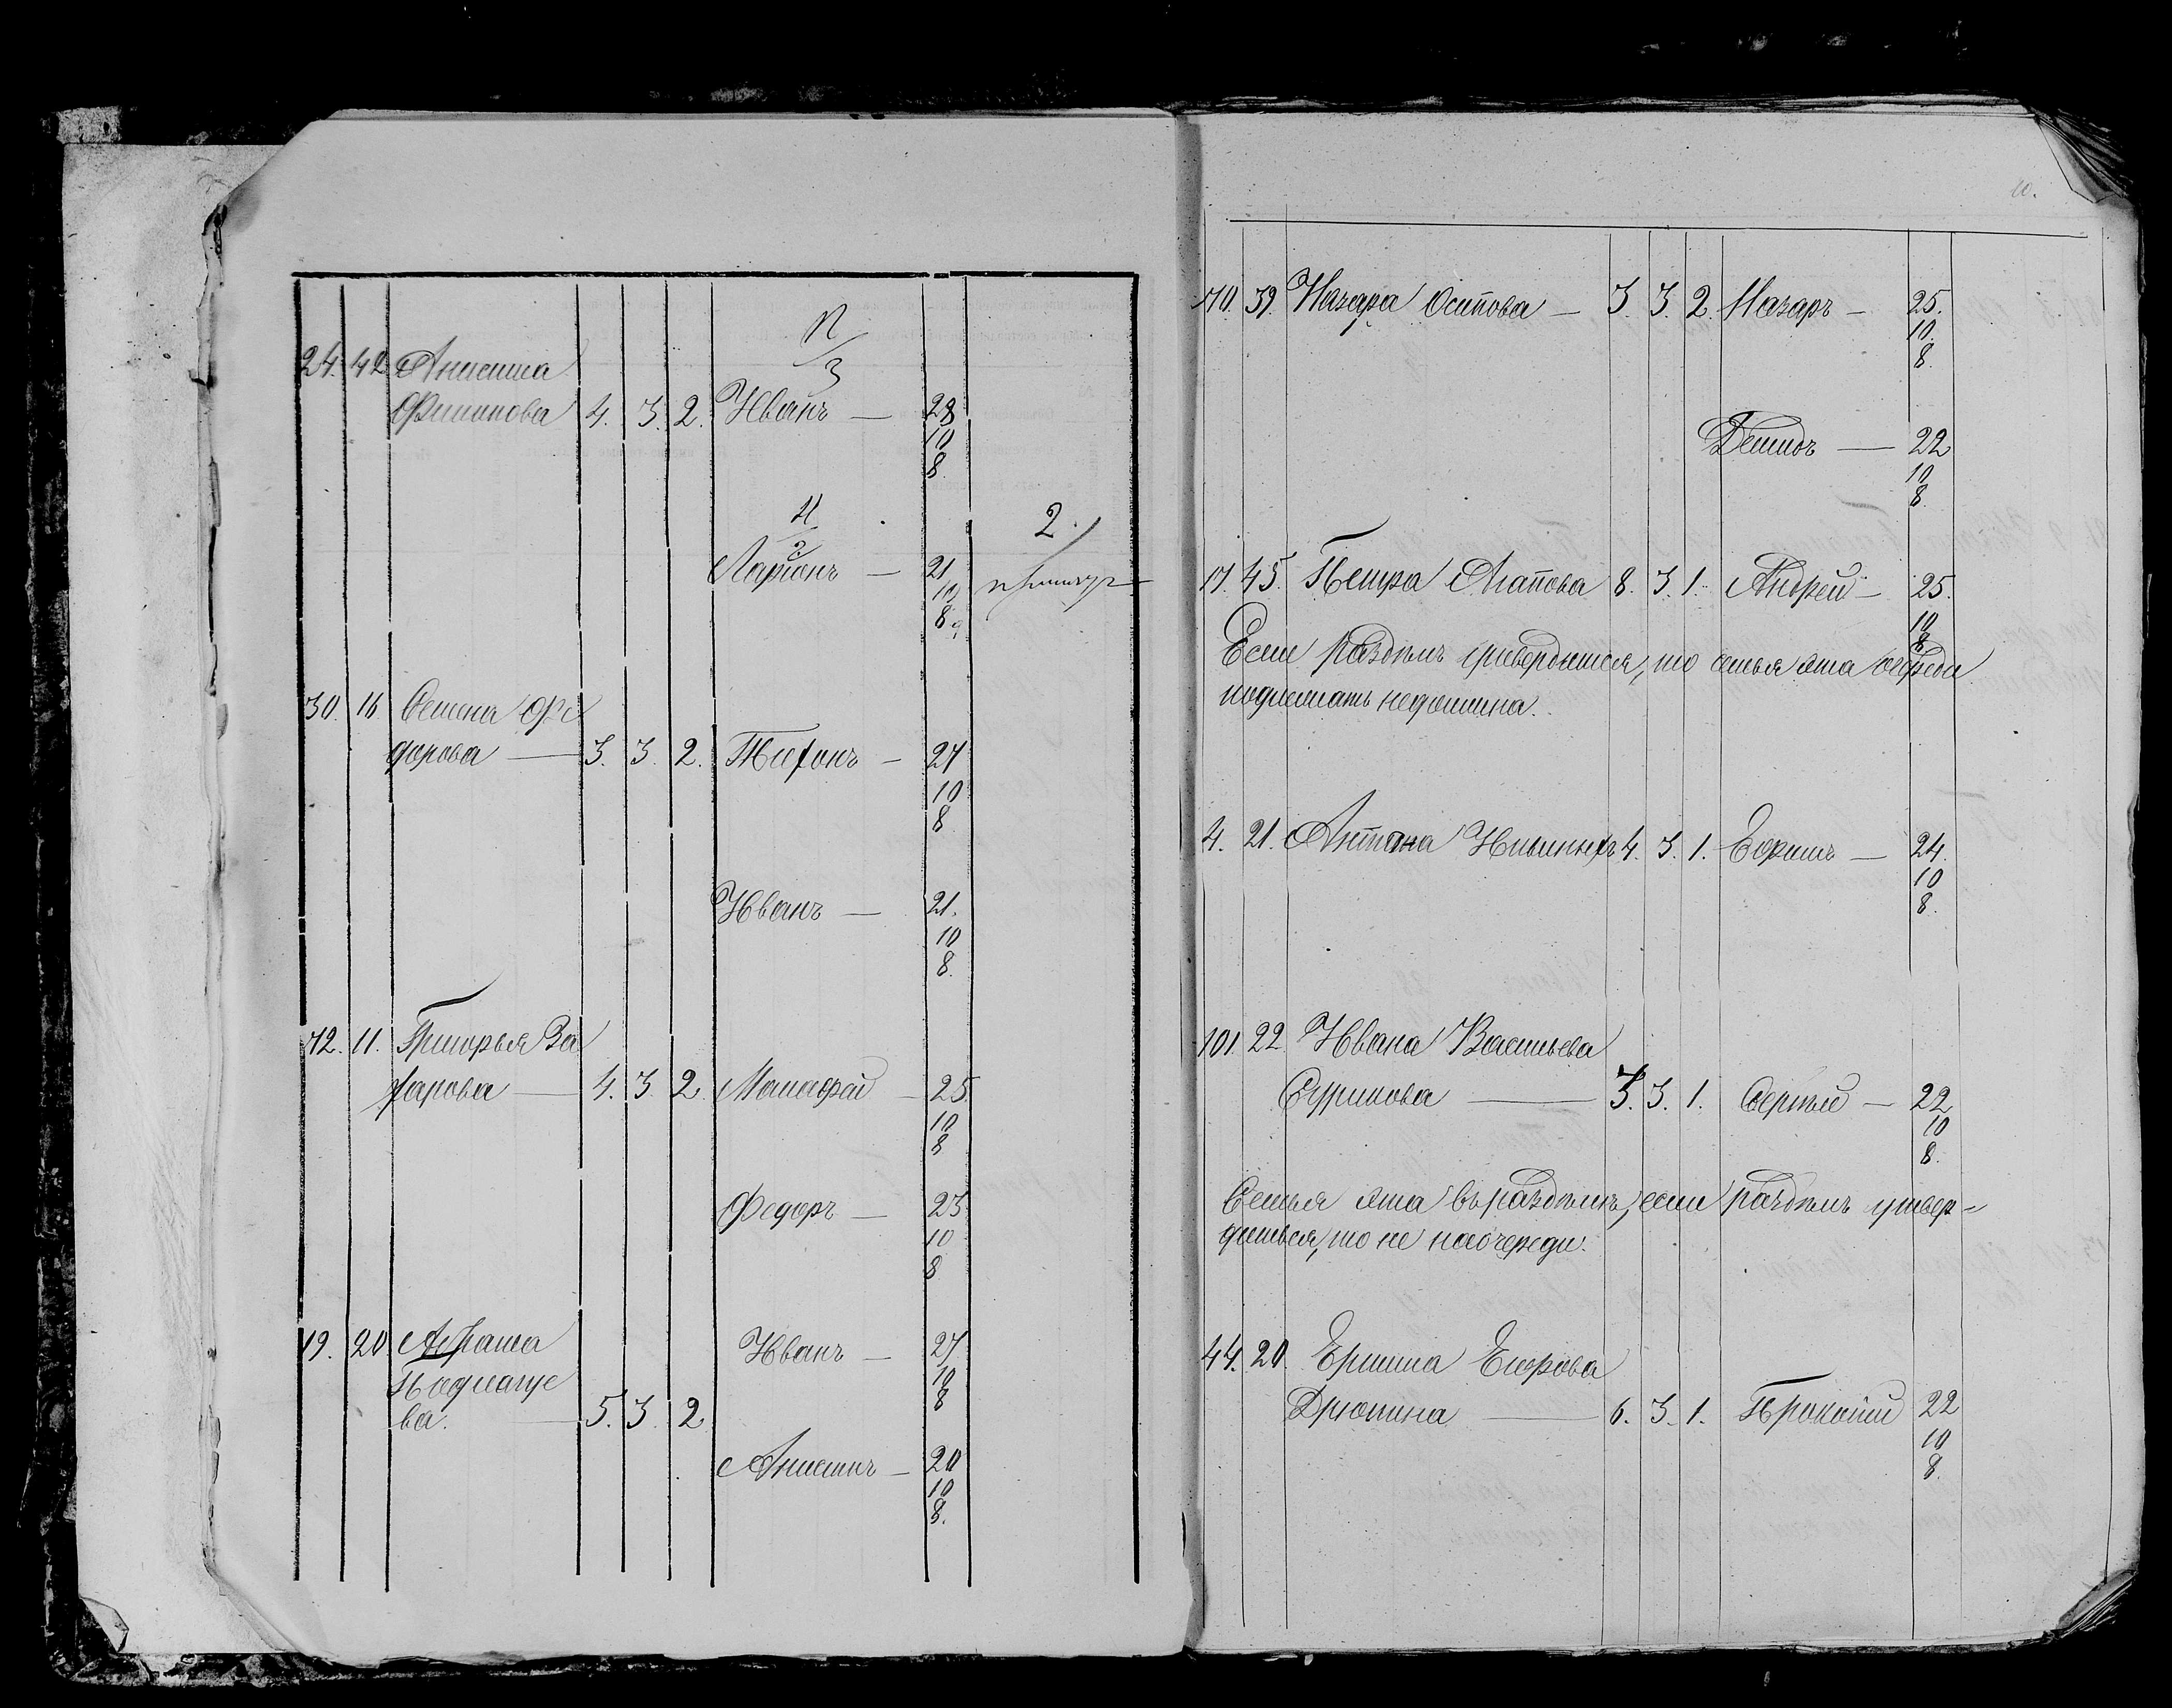 24. 42 Анисима
Филипова 4. 3. 2. Иванъ — 28
10
8.
2.
Ларіонъ — 21
10
8
30. 16 Семена Фе
дорова — 3. 3. 2. Тихонъ — 27
10
8
Иванъ — 21.
10
8.
72. 11. Григорья За
харова — 4. 3. 2. Малафей — 25
10
8
Федоръ — 23
10
8
19. 20 Абрама
ва. — 5. 3. 2
Иванъ — 27
10
8
Анисимъ — 20
10
8.
10.
70. 39. Назара Осипова — 3. 3. 2. Назаръ — 25.
10.
8.
Демидъ — 22
10
8.
17. 45. Петра Агапова 8. 3. 1. Андрей — 25.
10
8
Если раздѣлъ утвердится, то семья эта очереди
подлежать недолжна.
4. 21. Антона Ильиныхъ 4. 3. 1. Ефимъ — 24.
10
8.
101. 22 Ивана Васильева
Сурикова — 3. 3. 1. Сергѣй — 22
10
8.
Семья эта въ раздѣлѣ, если раздѣлъ утвер-
диться, то не наочереди.
44. 20 Ермила Егорова
Дрюпина — 6. 3. 1. Прокопій 22
10
8.